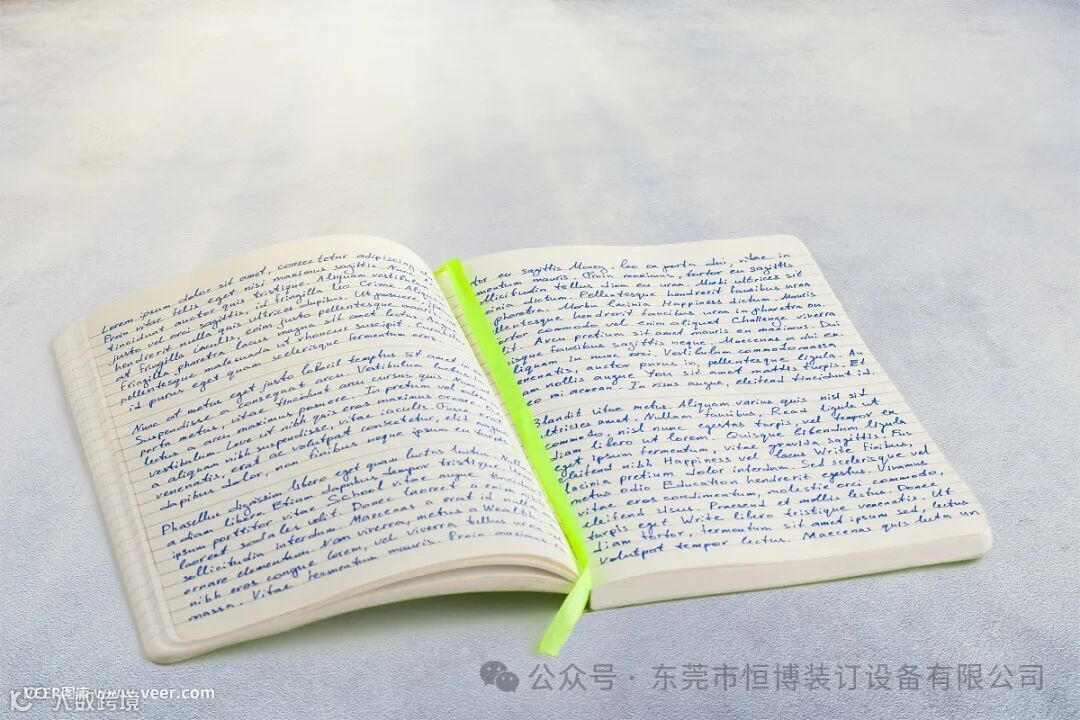 Lorem ipsum dolor sit amet, consectetur adipiscing
Proin vitae felis eget nisi maximus sagittis. Nunc
tincidunt auctor quis tristique. Aliquam vestibul
justo vel orci sagittis, id fringilla leo Crime. Aliquam
hendrerit nulla quis ultrices dapibus. Ut posuere
ut fringilla iaculis, enim justo pellentesque
fringilla pharetra lacus magna sit amet lectus
pellentesque malesuada ut rhoncus suscipit. Curabi
id purus eget quam scelerisque fermentum
Nunc at metus eget justo lobortis tempus sit amet in
Suspendisse a consequat arcu. Vestibulum luctus
porta metus, vitae tincidunt arcu cursus quis. Nunc
lectus a arcu maximus posuere. In pretium vel
vestibulum Love ut nibh quis eros maximus ornare
a aliquam nibh suspendisse, vitae iaculis.
venenatis, erat ac volutpat consectetur, elit
dapibus dolor, non finibus neque ipsum eu
Phasellus dignissim libero eget quam luctus luctus
a diam libero Etiam dapibus tempor tristique
ipsum porttitor vitae School vitae augue
laoreet sodales velit. Donec laoreet
sollicitudin interdum. Maecenas a erat id nulla
ornare elementum. Nam viverra, metus a Wealth
nibh eros congue lorem, vel viverra tellus urna
massa. Vitae fermentum mauris. Proin maximus
tor eu sagittis Money, leo ex porta dui, vitae in
mentum mauris Proin maximus, tortor eu sagittis
ollicitudin tellus diam eu urna. Morbi ultrices sit
inia dictum. Pellentesque hendrerit faucibus urna
pharetra. Morbi lacinia Happiness dictum Mauris
llentesque hendrerit faucibus urna in pharetra
tortor commodo vel enim aliquet Challenge viverra
lit. Arcu pretium sit amet mauris en maximus. Dui
isque faucibus sagittis neque. Maecenas in dui
liquam in nunc orci. Vestibulum commodo massa
enenatis, auctor purus in, pellentesque ligula. Ac
am mollis augue. You sit amet mattis turpis. Et
eo mi aenean. In risus augue, eleifend tincidunt id.
Blandit vitae metus. Aliquam varius quis nisl sit
ultricies amet. Nullam faucibus, Read ligula ut
commodo, nisl nunc egestas turpis, vel tempor ex
diam libero ut lorem. Quisque bibendum ligula
eget ipsum fermentum, vitae gravida sagittis. Fus
eleifend nibh Happiness vel lacus Write finibus
lacinia pretium dolor interdum. Sed scelerisque vel
metus odio Education hendrerit egestus. Vivamus
vitae eros condimentum, molestie orci commodo
eleifend risus. Praesend mollis lectus. Donec
turpis eget Write libero tristique venenatis. Ut
diam tortor, fermentum sit amet ipsum sed, lectus
volutpat tempor lectus. Maecenas quis ligula un
公众号 · 东莞市恒博装订设备有限公司
VEER图库 www.veer.com
大数跨境